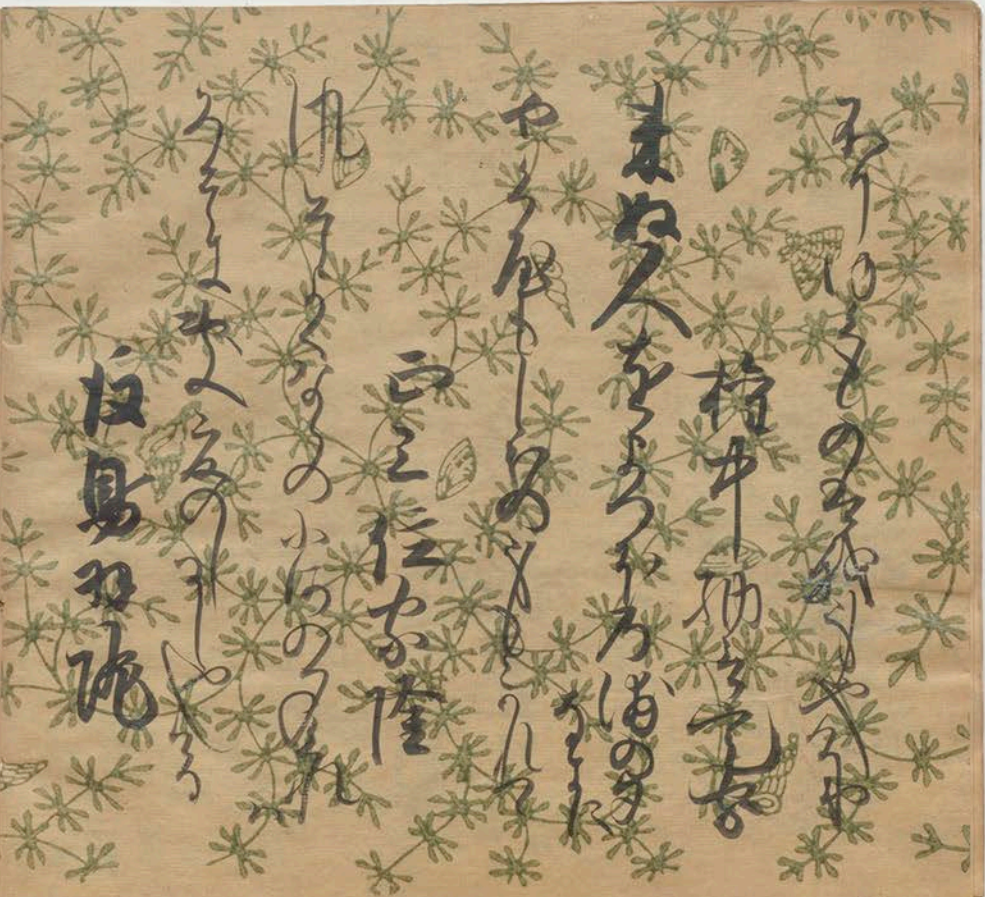 ふりゆくものは我身なりけり
権中納言定家
来ぬ人をまつほの浦の夕
なきに
やくやもしほの身もこかれつゝ
正三位家隆
風そよくならの小川の夕暮は
みそきそ夏のしるしなりける
後鳥羽院